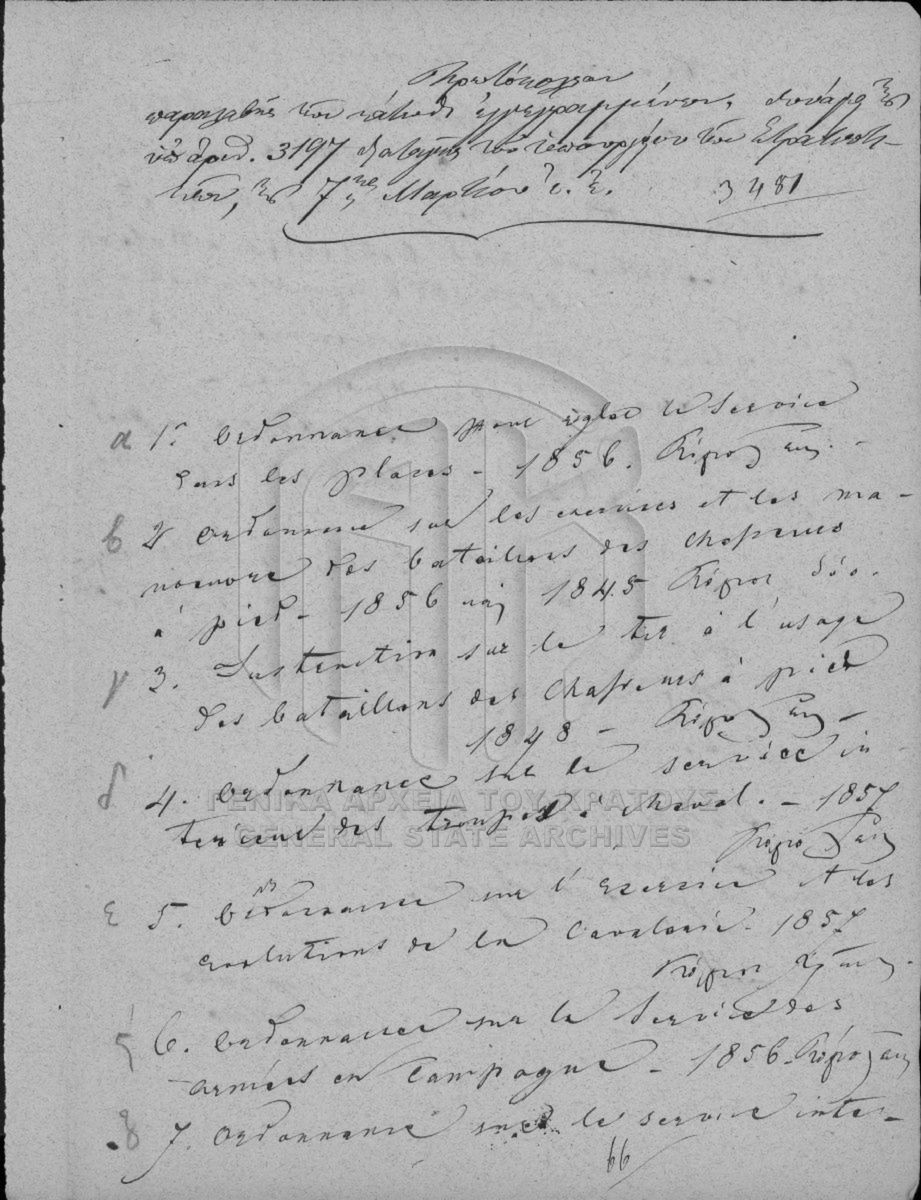 Πρωτόκολλον
παραλαβῆς τῶν κάτωθι ἐγγεγραμμένων, δυνάμει τῆς
ὑπ' ἀριθ. 3197 διαταγῆς τοῦ ὑπουργείου τῶν Στρατιωτι-
κῶν, τῆς 7ης Μαρτίου ἐ. ἔ. 3481
α 1. Ordonnance pour régler le Service
dans les places - 1856. Τόμος εἷς. -
β 2 Ordonnance sur les exercices et les ma-
noeuvre des bataillons des chasseurs
à pied - 1856 καὶ 1845 Τόμοι δύο.
γ 3. Instruction sur le tir à l'usage
des bataillons des chasseurs à pied
1848 - Τόμος εἷς -
δ 4. Ordonnance sur le service in
terieur des troupes à cheval. - 1857
Τόμος εἷς
ε 5. Ordonnance sur l'exercice et les
evolutions de la Cavalerie - 1857
Τόμοι
ς 6. Ordonnance sur le Service des
armées en Campagne - 1856 - Τόμος εἷς
7. Ordonnance sur le service inter-
66
ΓΕΝΙΚΑ ΑΡΧΕΙΑ ΤΟΥ ΚΡΑΤΟΥΣ
GENERAL STATE ARCHIVES